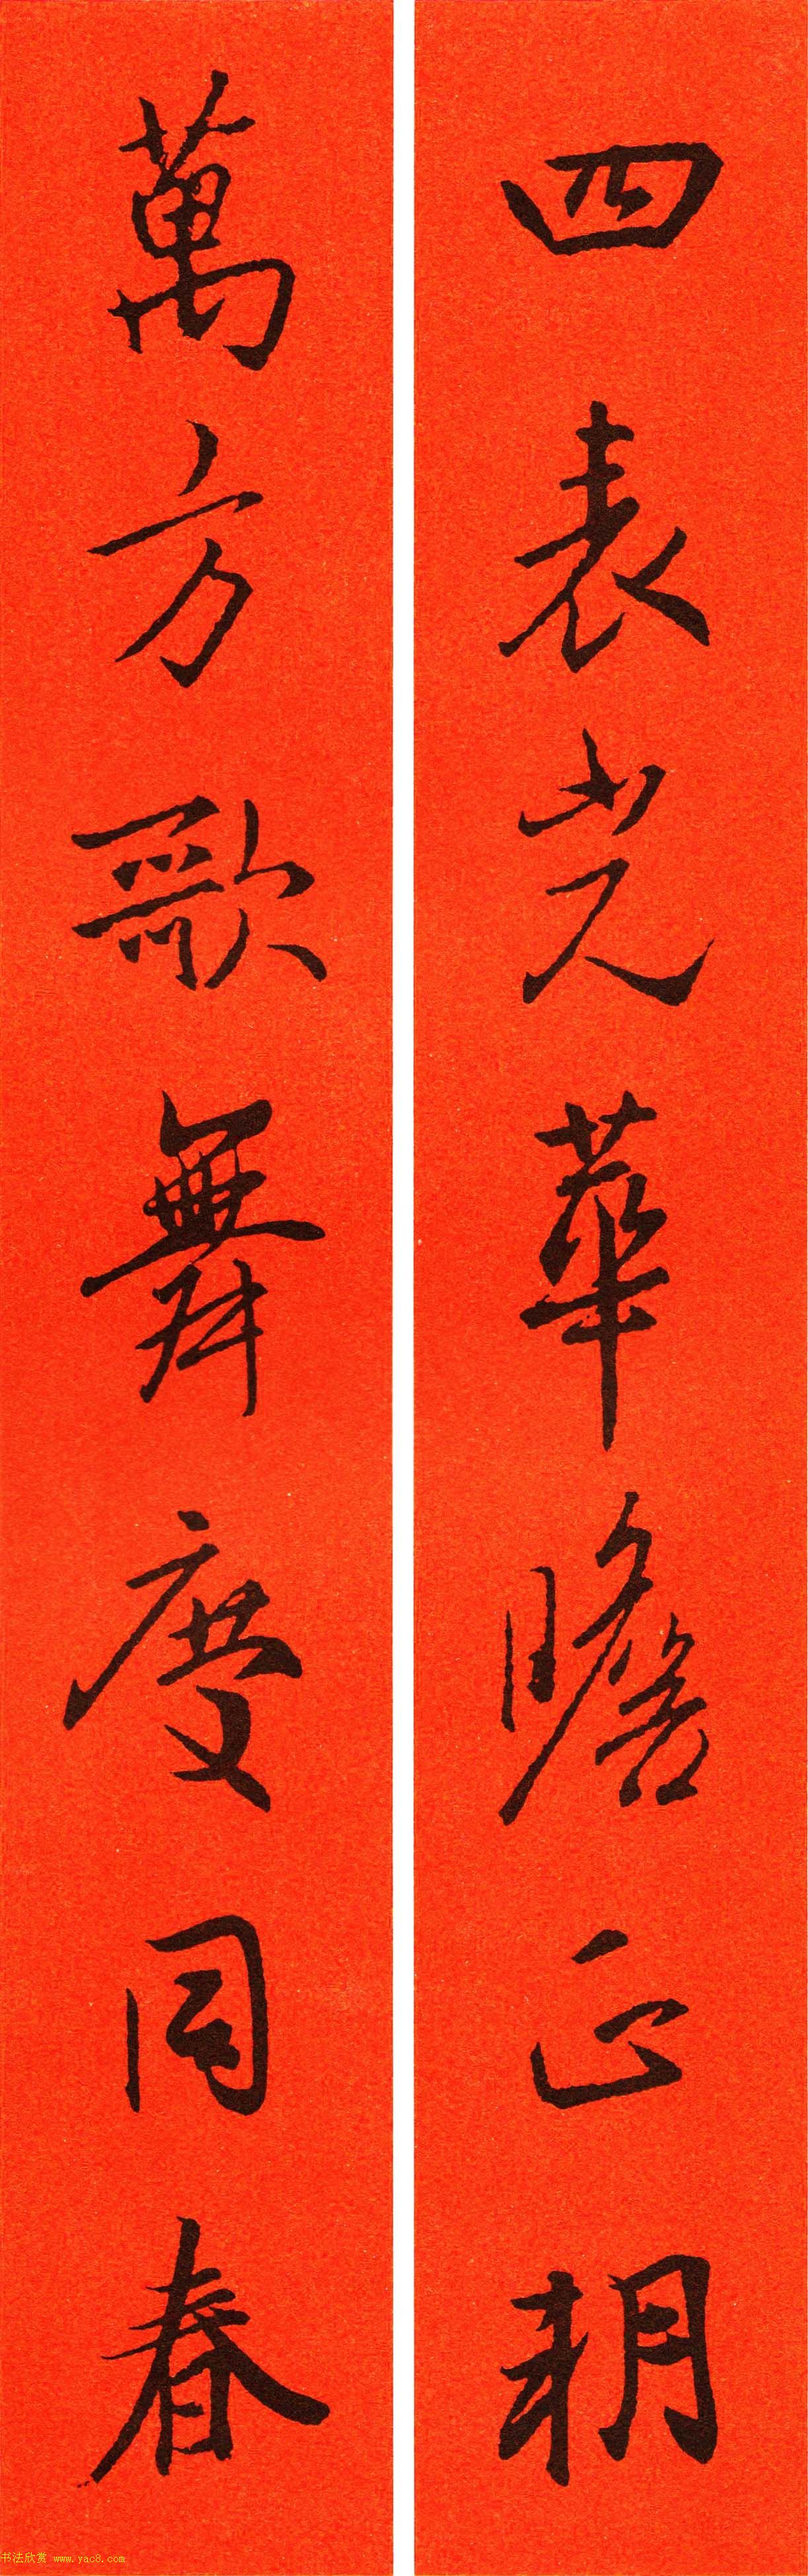 四表光華瞻正朝
萬方歌舞慶同春
书法欣赏 www.yac8.com